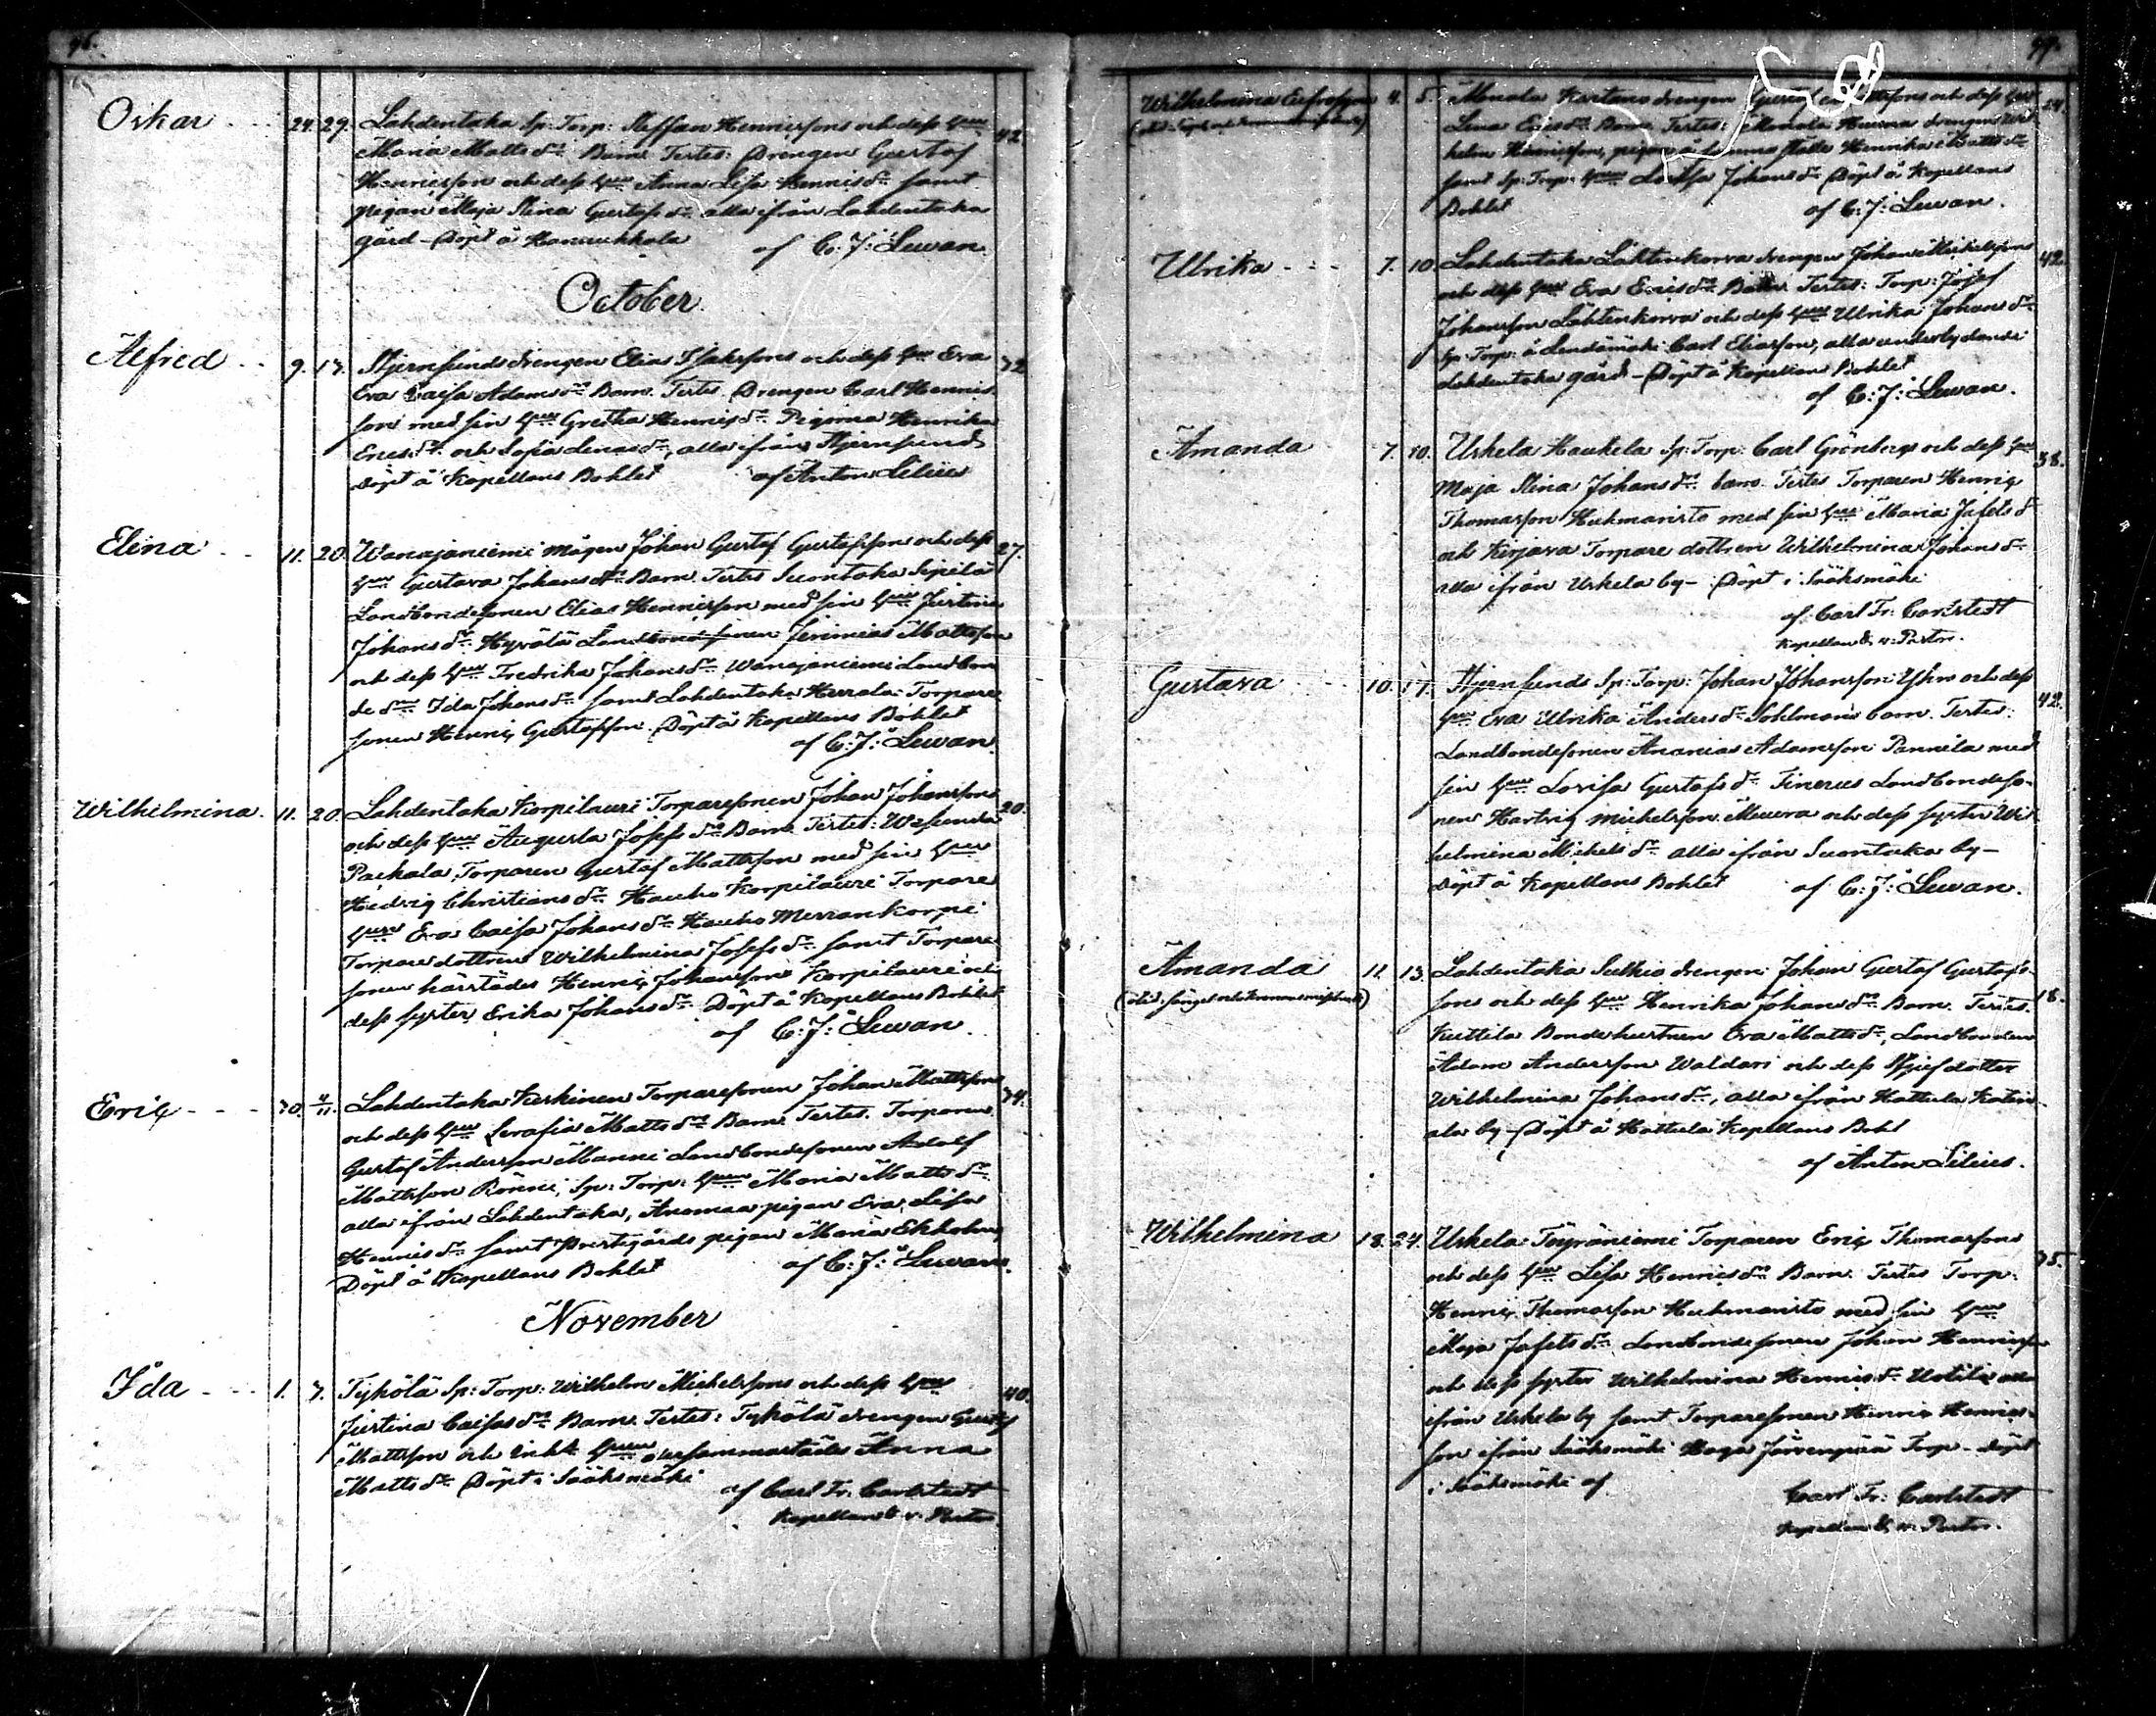 96.
Oskar - - 24. 29. Lahdentaka Sp: Torp: Steffan Henricssons och dess Hu 42
Maria Matts dr Barn. Testes: Drengen Gustaf
Henricsson och dess Hu Anna Lisa Henrics dr samt
pigan Maja Stina Gustafs dr alla ifrån Lahdentaka
gård - Döpt å
af C: J: Lewan.
October.
Alfred - - 9. 17. Stjernsunds drengen Elias Isakssons och dess Hu Eva 32
Eva Caisa Adams dr Barn. Testes Drengen Carl Henrics-
son med sin Hu Gretha Henrics dr Pigorna Henrika
Erics dr och Sofia Lenas dr, alla ifrån Stjernsund
Döpt å Kapellans Bohlet af Anton Lilius
Elina - - 11. 20. Wanajaniemi mågen Johan Gustaf Gustafsson och dess 27.
Hu Gustava Johans dr Barn. Testes Suontaka Sipilä
Landbondesonen Elias Henricsson med sin Hu Justina
Johans dr Hyrölä Landbondesonen Jeremias Mattsson
och dess Hu Fredrika Johans dr Wanajaniemi Landbon
de dr Ida Johans dr samt Lahdentaka Torpare
sonen Henric Gustafsson. Döpt å Kapellans Bohlet
af C: J: Lewan.
Wilhelmina. 11. 20. Lahdentaka Korpilauri Torparesonen Johan Johanssons 20.
och dess Hu Augusta Josefs dr Barn. Testes:
Torparen Gustaf Mattsson med sin Hu
Hedvig Christians dr Hauho Korpilauri Torpare
Hu Eva Caisa Johans dr Hauho
Torparedottren Wilhelmina Josefs dr samt Torpare
sonen härstädes Henric Johansson Korpilauri och
dess syster Erika Johans dr Döpt å Kapellans Bohlet
af C: J: Lewan.
Eric - - - 30. 4/11. Lahdentaka Torparesonen Johan Mattssons 34.
och dess Hu Serafia Matts dr Barn. Testes. Torparen
Gustaf Andersson Manni Landbondesonen Adolf
Mattsson Sp: Torp: Hu Maria Matts dr
alla ifrån Lahdentaka, pigan Eva Lisa
Henrics dr samt Prestgårds pigan Maria Ekholm
Döpt å Kapellans Bohlet af C: J: Lewan.
November
Ida - - - 1. 7. Tykölä Sp: Torp: Wilhelm Michelssons och dess Hu 40.
Justina Caisas dr Barn. Testes: Tykölä drengen Gustaf
Mattsson och Anna
Matts dr Döpt i Sääksmäki
af Carl Fr. Carlstedt
Kapellan & v. Pastor
97.
Wilhelmina Eufrosyne 4. 5. 24.
Lena Erics dr Barn. Testes: drengen Wil-
helm Henricsson, pigan å samma ställe Henrika Matts dr
samt Sp: Torp: Hu Lovisa Johans dr Döpt å Kapellans
Bohlet af C: J: Lewan.
Ulrika - - - 7. 10 Lahdentaka drengen Johan Michelssons 42.
och dess Hu Eva Erics dr Barn. Testes: Torp: Josef
Johansson och dess Hu Ulrika Johans dr
Sp: Torp: å Carl Eliasson, alla underlydande
Lahdentaka gård - Döpt å Kapellans Bohlet
af C: J: Lewan.
Amanda 7. 10. Uskela Haukela Sp: Torp: Carl Grönbergs och dess Hu 38.
Maja Stina Johans dr barn. Testes Torparen Henric
Thomasson Huhmaristo med sin Hu Maria Jafets dr
och Kirjava Torpare dottren Wilhelmina Johans dr
alla ifrån Uskela by - Döpt i Sääksmäki
af Carl Fr: Carlstedt
Kapellan & v: Pastor.
Gustava - - - 10. 17. Stjernsunds Sp: Torp: Johan Johansson och dess 42.
Hu Eva Ulrika Anders dr Sohlmans barn. Testes:
Landbondesonen Ananias Adamsson Pannila med
sin Hu Lovisa Gustafs dr Landbondeso-
nen Hartvig Michelsson och dess syster Wil-
helmina Michels dr alla ifrån Suontaka by -
Döpt å Kapellans Bohlet af C: J: Lewan.
Amanda 11. 13. Lahdentaka Sulkio drengen Johan Gustaf Gustafs- 18.
sons och dess Hu Henrika Johans dr Barn. Testes.
Kuttila Bondehustrun Eva Matts dr, Landbonden
Adam Andersson Waldari och dess Styfdotter
Wilhelmina Johans dr, alla ifrån Hattula Katin-
ala by - Döpt å Hattula Kapellans Bohl
af Anton Lilius.
Wilhelmina 18. 24. Uskela Töyräniemi Torparen Eric Thomassons 35.
och dess Hu Lisa Henrics dr Barn. Testes Torp:
Henric Thomasson Huhmaristo med sin Hu
Maja Jafets dr Landbondesonen Johan Henricsson
och dess syster Wilhelmina Henrics dr Uotila alla
ifrån Uskela by samt Torparesonen Henric Henrics-
son ifrån Sääksmäki Haga Järvenpää Torp - döpt
i Sääksmäki af
Carl Fr: Carlstedt
Kapellan & v. Pastor.